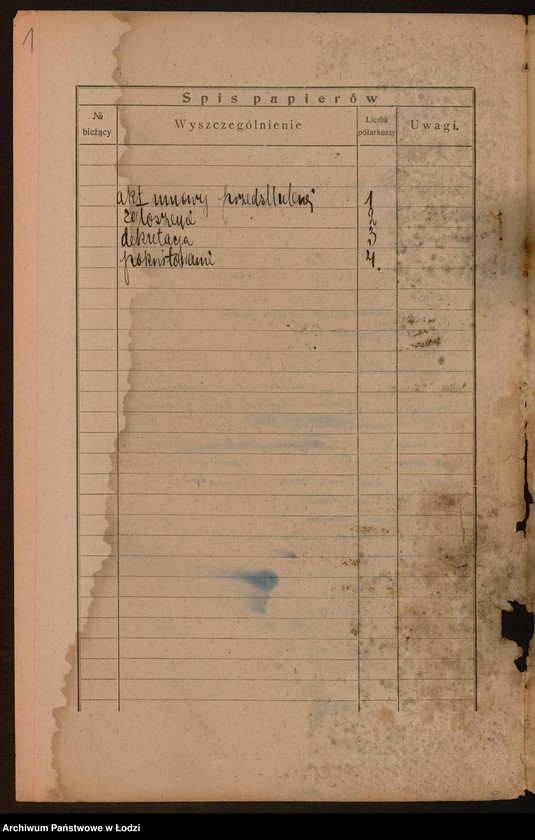 1
Spis papierów
№ bieżący Wyszczególnienie Liczba półarkuszy Uwagi.
akt umowy przedślubnej 1
zgłoszenie 2
dekretacja 3
pokwitowanie 4.
Archiwum Państwowe w Łodzi